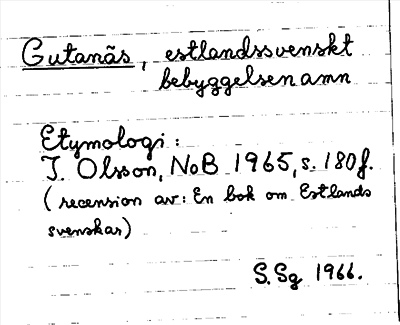 Gutanäs, estlandssvenskt
bebyggelsenamn
Etymologi:
I. Olsson, NoB 1965, s. 180f.
(recension av: En bok om Estlands
svenskar)
S.Sg 1966.